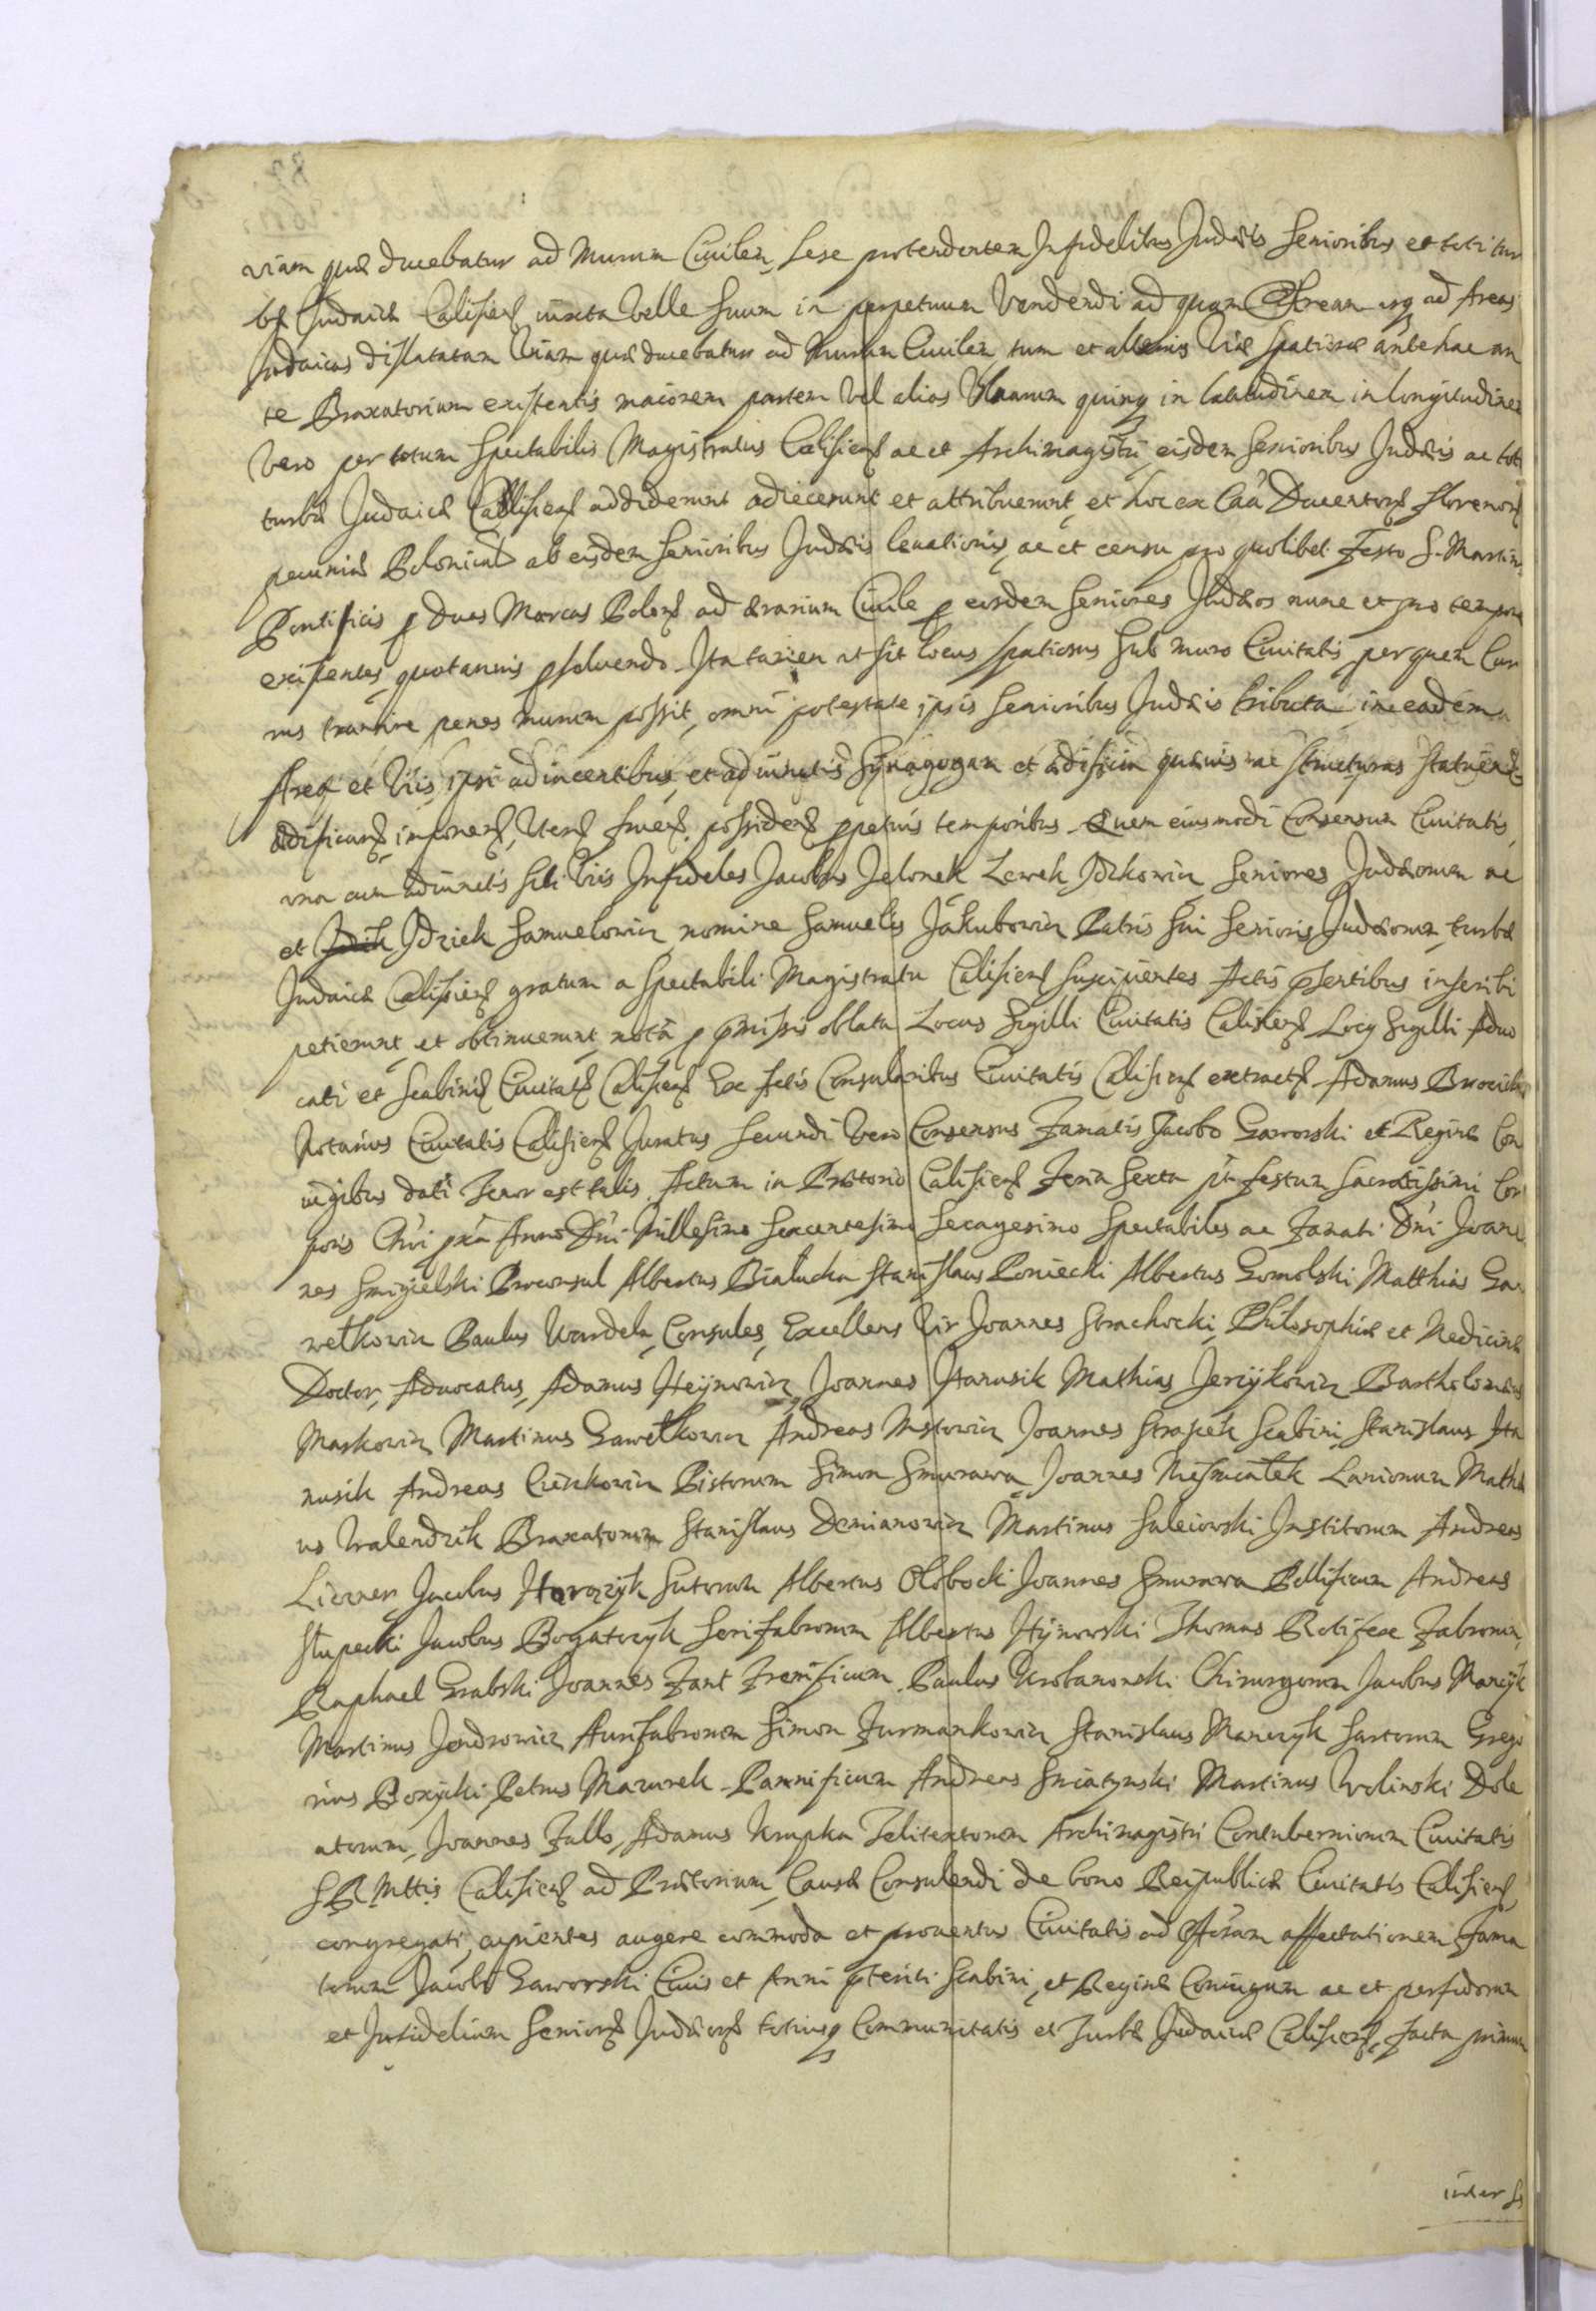 viam quæ ducebatur ad Murum Ciuilem, sese protendentem Infidelibus Judæis Senioribus et toti tur
bæ Judaicæ Calisien iuxta velle suum in perpetuum Vendendi ad quam Aream usq ad Areas
Judaicas dislatatam Viam quæ ducebatur ad Murum Ciuilem tum et alterius Viæ spatiosæ antehac an
te Braxatorium existentis maiorem partem vel alias Vlnarum quinq in latitudinem in longitudinem
Vero per totum Spectabilis Magistratus Calisien ac et Archimagistri eisdem Senioribus Judæis ac toti
turbæ Judaicæ Calisien addiderunt adiecerunt et attribuerunt, et hoc ex Caa Ducentorum florenorum
pecuniæ Polonical ab eisdem Senioribus Judæis leuationis ac et censu pro quolibet Festo S. Martini
Pontificis p duas Marcas Polon ad ærarium Ciuile p eosdem Seniores Judæos nunc et pro tempore
existentes quotannis psoluendo Ita tamen ut sit locus spatiosus sub muro Ciuitatis per quem Cur
rus transire penes murum possit, omni potestate ipsis Senioribus Judæis tributa in eadem
Area et Viis ipsi adiacentibus et adiunctis Synagogam et ædificia quæuis ac structuras statuend
ædificand imponend, Vtend fruend possidend ppetuis temporibus Quem eiusmodi Consensum Ciuitatis
vna cum adiunctis sibi Viis Infideles Jacobus Jelonek Lewek Jdzkowicz Seniores Judæorum ac
et Jdzik Jdzick Samuelowicz nomine Samuelis Jakubowicz Patris sui Senioris Judæorum turbæ
Judaicæ Calisien gratum a Spectabili Magistratu Calisien suscipientes Actis psentibus inscribi
petierunt et obtinuerunt nota p pmissis oblata Locus Sigilli Ciuitatis Calisien Locus Sigilli Aduo
cati et Scabinor Ciuitatis Calisien Ex Actis Consularibus Ciuitatis Calisien extract Adamus
Notarius Ciuitatis Calisien Juratus Secundi Vero Consensus Famatis Jacobo Gaworski et Reginæ Con
iugibus dati Tenor est talis Actum in Prætorio Calisien Feria Sexta pt festum Sacratissimi Cor
poris Chri pxa Anno Dni Millesimo Sexcentesimo Sexagesimo Spectabiles ac Famati Dni Joan
nes Smigielski Proconsul Albertus Bialucha Stanislaus Poniecki Albertus Gomolski Matthias Ga
wełkowicz Paulus Wardela Consules, Excellens Vir Joannes Strachocki, Philosophiæ et Medicinæ
Doctor, Aduocatus, Adamus Heynowicz Joannes Hanusik Mathias Jerzykowicz Bartholomæus
Maskowicz Martinus Gawełkowicz Andreas Joannes Scabini Stanislaus Ha
nusik Andreas Pistorum Simon Smurawa Joannes Lanionum Mathæ
us Walendzik Braxatorum Stanislaus Demianowicz Martinus Suleiowski Institorum Andreas
Jacobus Sutorum Albertus Ołobocki Joannes Smurawa Pellificum Andreas
Słupecki Jacobus Bogatczyk Serifabrorum Albertus Thomas Rotifex Fabrorum,
Raphael Grabski Joannes Fant Frenificum Paulus Urbanowski Chirurgorum Jacobus
Martinus Jendrowicz Aurifabrorum Simon Furmankowicz Stanislaus Marczyk Sartorum Grego
rius Petrus Mazurek Pannificum Andreas Sniatynski Martinus Wolinski Dole
atorum, Joannes Fallo, Adamus Krupka Telitextorum Archimagistri Contuberniorum Ciuitatis
S R Mttis Calisien ad Prætorium, Causa Consulendi de bono Reipublicæ Ciuitatis Calisien
congregati, cupientes augere commoda et prouentus Ciuitatis ad affectationem Fama
torum Jacobi Gaworski Ciuis et Anni pteriti Scabini, et Reginæ Coniugum ac et perfidorum
et Infidelium Seniorum Judæorum totiusq Communitatis et Turbæ Judaicæ Calisien, facta primum
inter se